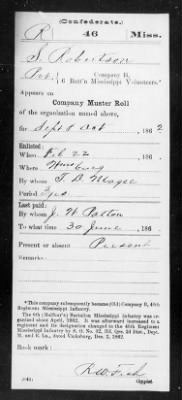 (Confederate.)
R 46 Miss.
S. Robertson
Pvt., Company B,
6 Batt'n Mississippi Volunteers.*
Appears on
Company Muster Roll
of the organization named above,
for Sept & Oct, 186 2
Enlisted:
When Feb 22, 186
Where
By whom T. D. Magee
Period 3 yrs
Last paid:
By whom J. W. Patton
To what time 30 June, 186
Present or absent Present
Remarks:
*This company subsequently became (Old) Company B, 46th
Regiment Mississippi Infantry.
The 6th (Balfour's) Battalion Mississippi Infantry was or-
ganized about April, 1862. It was afterward increased to a
regiment and its designation changed to the 46th Regiment
Mississippi Infantry by S. O. No. 32, Hd. Qrs. 2d Dist., Dept.
M. and E. La., dated Vicksburg, Dec. 2, 1862.
Book mark:
Copyist.